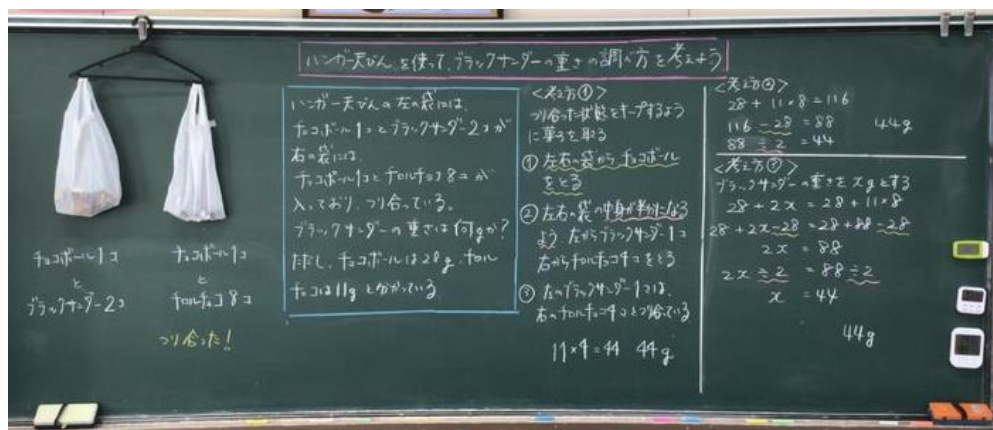 ハンガー天びんを使って、ブラックサンダーの重さの調べ方を考えよう
チョコボール1コ
と
ブラックサンダー2コ
チョコボール1コ
と
チロルチョコ8コ
つり合った!
ハンガー天びんの左の袋には、
チョコボール1コとブラックサンダー2コが
右の袋には、
チョコボール1コとチロルチョコ8コが
入っており、つり合っている。
ブラックサンダーの重さは何gか?
ただし、チョコボールは28g、チロル
チョコは11gと分かっている。
<考え方①>
つり合った状態をキープするよう
に菓子を取る
① 左右の袋からチョコボール
をとる
② 左右の袋の中身が半分になる
よう 左からブラックサンダー1コ
右からチロルチョコ4コをとる
③ 左のブラックサンダー1コは、
右のチロルチョコ4コとつり合っている
11×4=44 44g
<考え方②>
28+11×8=116
116-28=88 44g
88÷2=44
<考え方③>
ブラックサンダーの重さをxgとする
28+2x=28+11×8
28+2x-28=28+88-28
2x=88
2x÷2=88÷2
x=44
44g